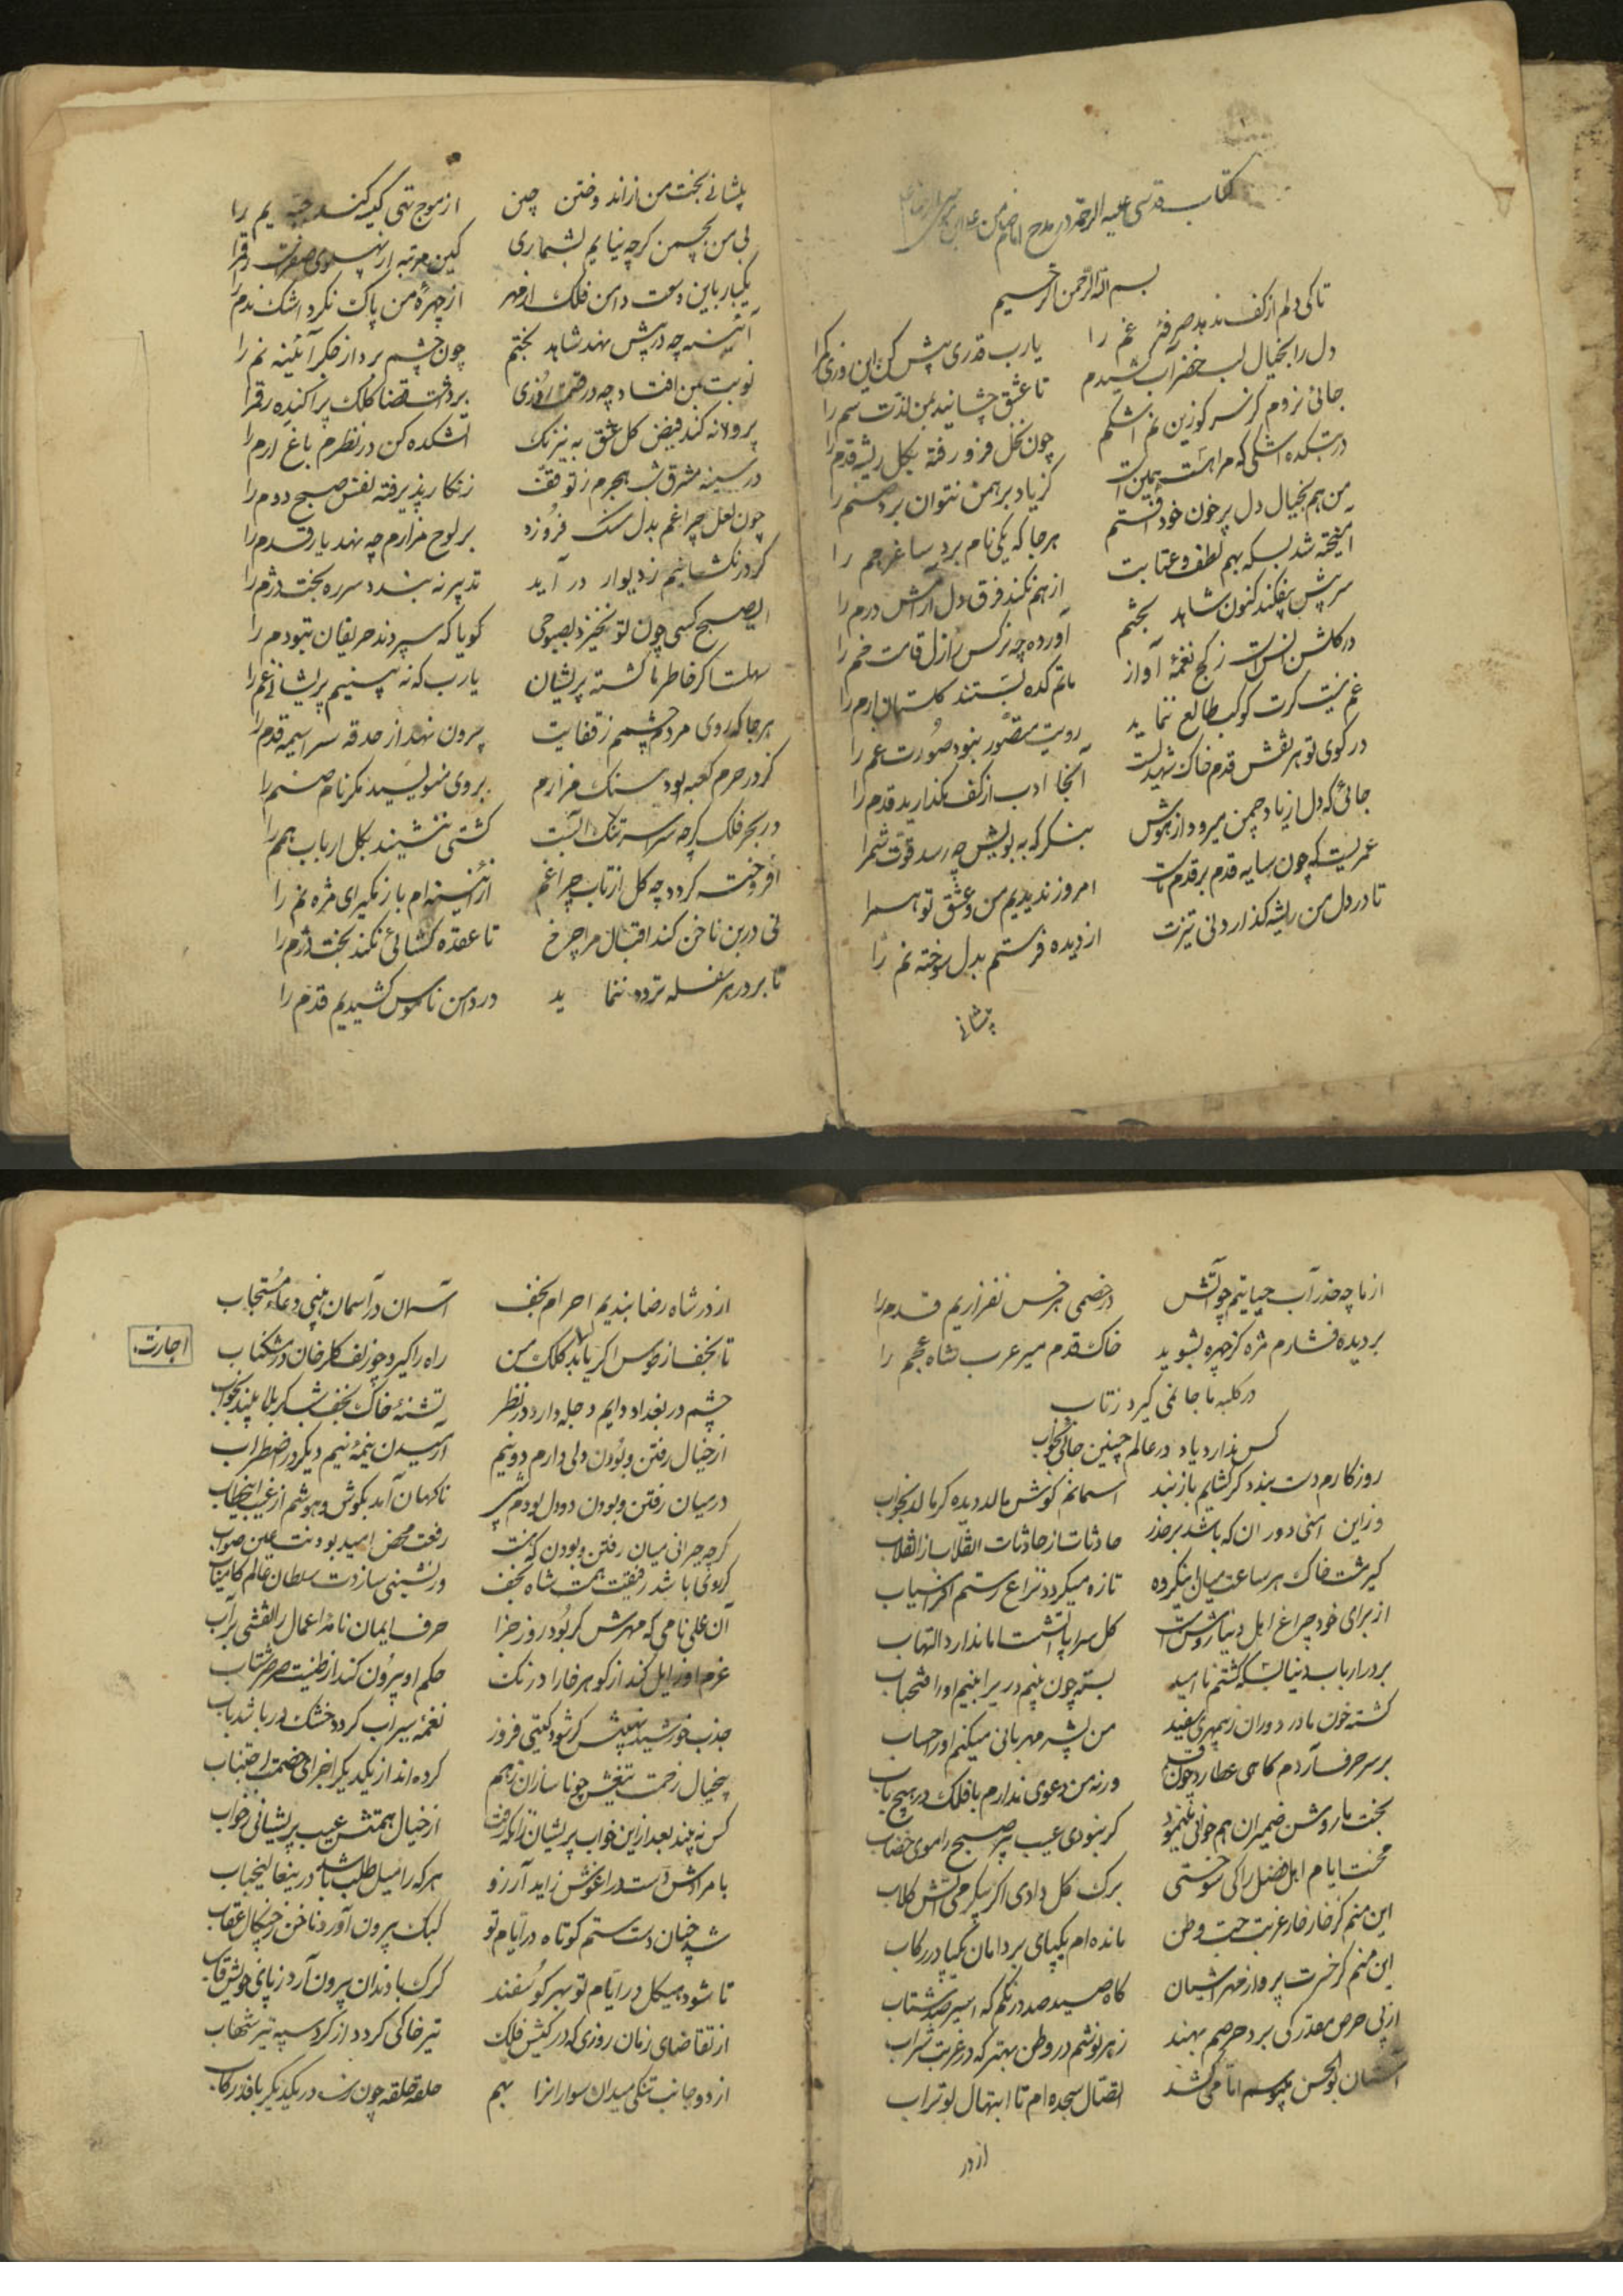 کتاب قدسی علیه الرحمه در مدح امام ضامن
بسم الله الرحمن الرحیم
تا کی دلم از کف ندهد صرفهٔ غم را
یارب قدری بیش کن این روزی کم را
دل را بخیال لب خضر آب کشیدم
تا عشق چشانید بمن لذت سم را
جائی نروم کز سر کو زین نم اشکم
چون نخل فرو رفته بکل ریشه قدم را
در بتکده اشکی که مرا هست همین است
کز یاد برهمن نتوان برد صنم را
من هم بخیال دل پر خون خود افتم
هر جا که یکی نام برد ساغر جم را
آمیخته شد بسکه بهم لطف و عتابت
از هم نکند فرق دل آرامش و رم را
سر پیش نیفکند کنون شاهد بختم
آورده چه نرکس ز ازل قامت خم را
در کلشن انس است ز کج نغمهٔ آواز
ماتم کده بستند کلستان ارم را
غم نیست کرت کوکب طالع ننماید
رویت متصور نبود صورت غم را
در کوی تو هر نقش قدم خاک شهیدیست
آنجا ادب از کف نکذارید قدم را
جائی که دل از یاد چمن میرود از هوش
بنگر که به بویش چه رسد قوت شم را
عمریست که چون سایه قدم بر قدم ماست
امروز ندیدیم من و عشق تو هم را
تا در دل من ریشه کذارد نی تیرت
از دیده فرستم بدل سوخته نم را
پیشانی
پیشانی بخت من از اندوختن چین
از موج تهی کیسه کند جبهه یم را
بی من بچمن کرچه نیایم بشماری
کین مرتبه از پهلوی صفرست رقم را
یکبار باین وسعت دامن فلک از مهر
از چهرهٔ من پاک نکرد اشک ندم را
آئینه چه در پیش نهد شاهد بختم
چون چشم بر داز جکر آئینه نم را
نوبت بمن افتاد چه در قسمت روزی
برداشت قضا کلک پراکنده رقم را
پروانه کند فیض کل عشق به نیرنک
آتشکده کن در نظرم باغ ارم را
در سینه مشرق شب هجرم ز توقف
زنکار پذیرفته نفس صبح دوم را
چون لعل چراغم بدل سنک فروزد
بر لوح مزارم چه نهد یار قدم را
کر در نکشایم ز دیوار در آید
تدبیر نه بندد سر ره بخت دژم را
ای صبح کسی چون تو نخیزد بصبوحی
کویا که سپردند حریفان بتو دم را
سهلست اکر خاطر ما کشته پریشان
یارب که نه بینیم پریشانی غم را
هر جا که روی مردم چشمم ز قفایت
بیرون نهد از حدقه سراسیمه قدم را
کز در حرم کعبه بود سنک مزارم
بر وی ننویسید مکر نام صنم را
در بحر فلک کرچه سراسر تنک آبست
کشتی ننشیند بکل ارباب همم را
افروخته کردد چه کل از تاب چراغم
از آئینه ام باز نکیرای مژه نم را
نی در بن ناخن کند اقبال مرا چرخ
تا عقده کشائی نکند بخت دژم را
تا بر در هر سفله تردد ننماید
در دامن ناموس کشیدیم قدم را
از ما چه حذر آب حیاتیم چو آتش
در خصمی هر خس نفرازیم قدم را
بر دیده فشارم مژه کز چهره بشوید
خاک قدم میر عرب شاه عجم را
در کلبه ما جا نمی کیرد ز تاب
کس ندارد یاد در عالم چنین جائی بخواب
روزکارم دست بندد کر کشایم باز بند
آسمانم کوش مالد دیده کر مالد بخواب
وز این امنی دوران که باشد بر حذر
حادثات از حادثات انقلاب از انقلاب
کیر مشت خاک هر ساعت میان اینکرده
تازه میکردد نزاع رستم افراسیاب
از برای خود چراغ اهل دنیا روشن است
کل سراپا آتشست اما ندارد التهاب
بر در ارباب دنیا بسکه کشتم ناامید
بسته چون بینم دری را بینم او را فتحباب
کشته خون مادر دوران ز بیمهری سفید
من بشه مهربانی میکنم او را حساب
بر سر حرف آردم کاهی عطارد چون قلم
ورنه من دعوی ندارم با فلک در هیچ باب
بخت ما روشن ضمیران هم جوانی مینمود
کر نبودی عیب پیر صبح را موی خضاب
محنت ایام اهل فضل را کی سوختی
برک کل دادی اکر پیکر می آتش کلاب
این منم کز خار خار غربت حب وطن
مانده ام یکپای بر دامان یکپا در رکاب
این منم کز حسرت پرواز مهر آشیان
کاه صید صد درنکم که اسیر صد شتاب
از پی حرص مقدر کی برد حرصم بهند
زهر نوشم در وطن بهتر که در غربت شراب
آستان بوالحسن میبوسم اما می کشد
اتصال سجده ام تا ابتهال بوتراب
از در
از در شاه رضا بندیم احرام نجف
آستان در آسمان بینی دعاء مستجاب
تا نجف از طوس اکر یابد کلک من
راه را کیرد چو زلف کلرخان در مشکناب
اجازت
چشم در بغداد دایم دجله دارد در نظر
تشنهٔ خاک نجف شب کربلا بیند بخواب
از خیال رفتن و بودن دلی دارم دو نیم
آرمیدن نیمهٔ نیم دیکر در اضطراب
در میان رفتن و بودن دو دل بودم
ناکهان آمد بکوش و هوشم از غیب این خطاب
کرچه حیرانی میان رفتن و بودن که نیست
رفعت محض امید بودنت عین صواب
کر روی باشد رفیقت همت شاه نجف
ور نشینی سازدت سلطان عالم کامیاب
آن علی نامی که مهرش کر بود روز جزا
حرف ایمان نامه اعمال را نقشی بر آب
عزم او زایل کند از کوهر خارا درنک
حکم او بیرون کند از طینت صرصر شتاب
جذب خورشید نهیبش کر شود کیتی فروز
نغمهٔ سیراب کردد خشک در باشد رباب
بیخیال زحمت تیغش چو ناسازان ز هم
کرده اند از یکدیکر اجزای خصمت اجتناب
کس نه بیند بعد ازین خواب پریشان زانکه رفت
از خیال همتش عیب پریشانی ز خواب
با مرادش دست در اغوش زاید آرزو
هر که را میل طلب باشد در ینعالیجناب
شد چنان دست ستم کوتاه در ایام تو
کبک بیرون آورد ناخن ز چنکال عقاب
تا شود هیکل در ایام تو بهر کوسفند
کرک با دندان بیرون آرد ز پای خویش قاب
از تقاضای زمان روزی که در کیش فلک
تیر خاکی کردد از کرد سپه تیر شهاب
از دو جانب تنکی میدان سواران را بهم
حلقه حلقه چون زره در یکدیکر بافد رکاب